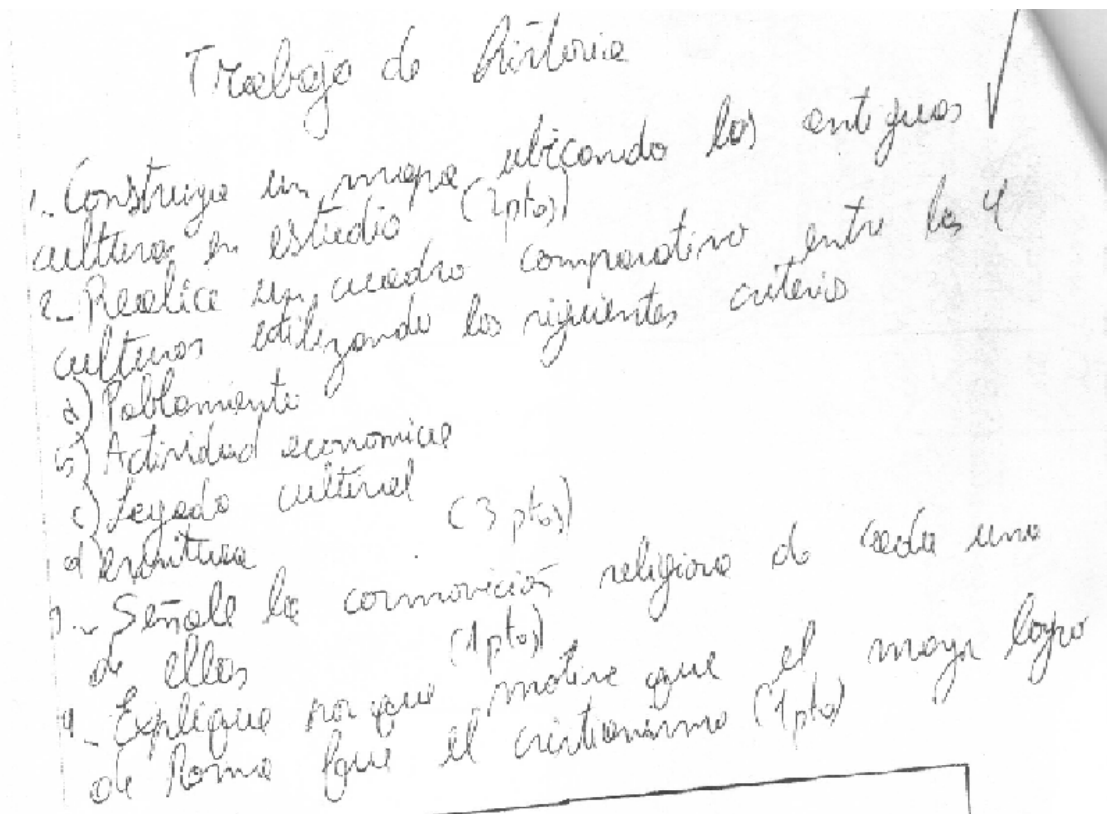 Trabajo de historia
1.. Construya un mapa ubicando las antiguas
culturas en estudio (2ptos)
2.- Realice un cuadro comparativo entre las 4
culturas utilizando los siguientes criterios
a) Poblamiento
b) Actividad economica
c) Legado cultural
d) escritura (3 ptos)
3.- Señale la cosmovición religiosa de cada una
de ellas (1ptos)
4.- Explique por que motivo que el mayor logro
de Roma fque el cristianismo (1pto)